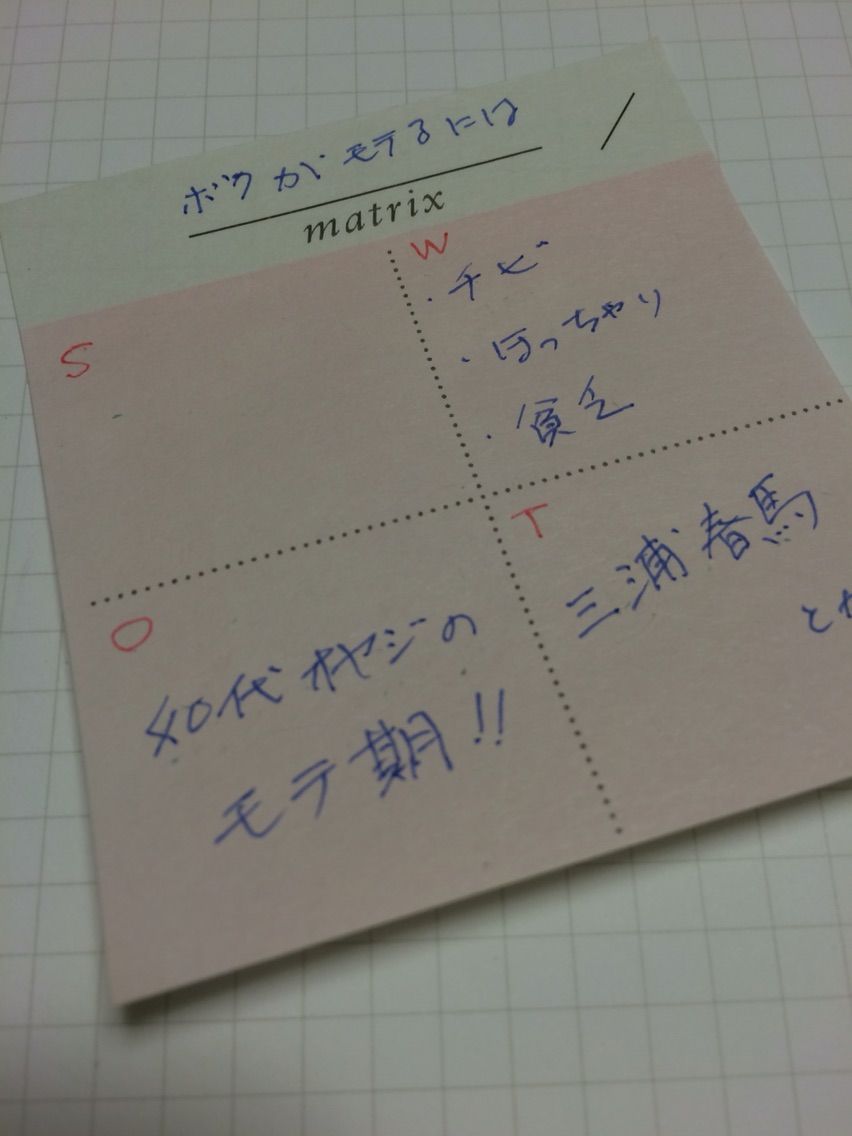 ボクがモテるには
matrix
S
W
・チビ
・ぽっちゃり
・貧乏
O
40代オヤジの
モテ期!!
T
三浦春馬
とか